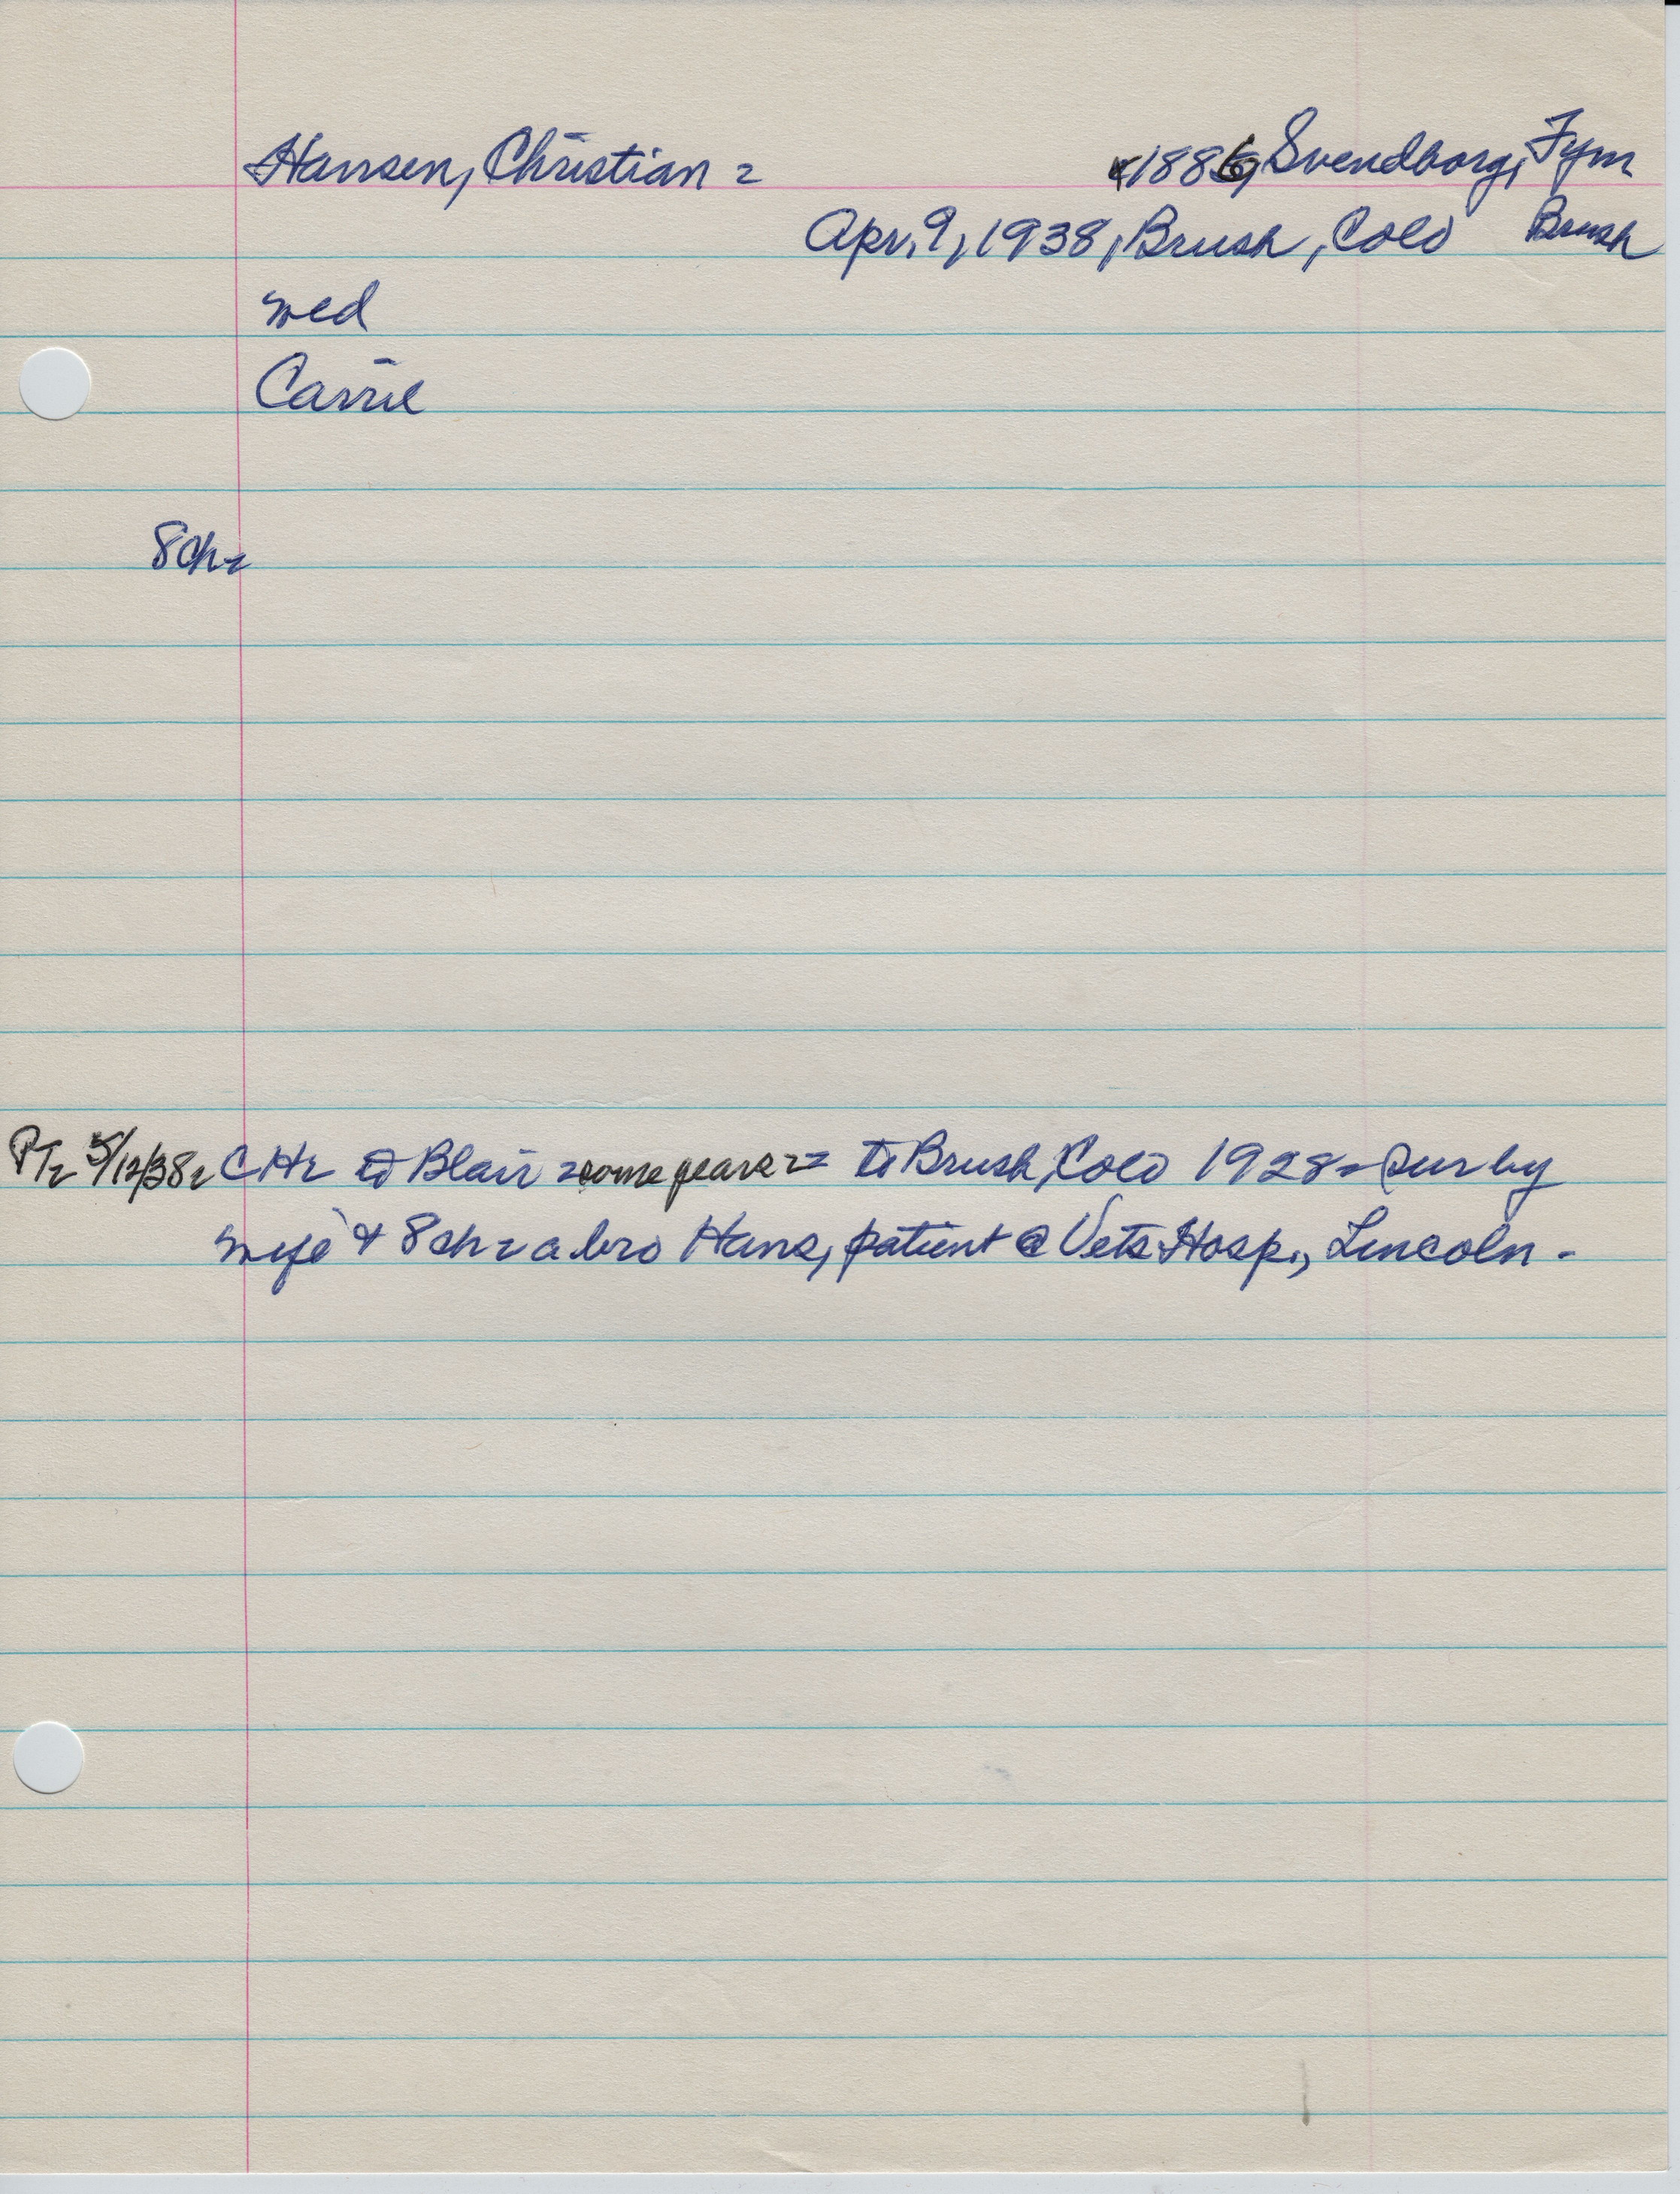 Hansen, Christian = 1886, Svendborg, Fyn
Apr. 9, 1938, Brush, Colo Brush
wed
Carrie
8 ch =
PT = 5/12/38 = CH = @ Blair = some years = to Brush, Colo 1928 = sur by
wife & 8 ch = a bro Hans, patient @ Vets Hosp., Lincoln -